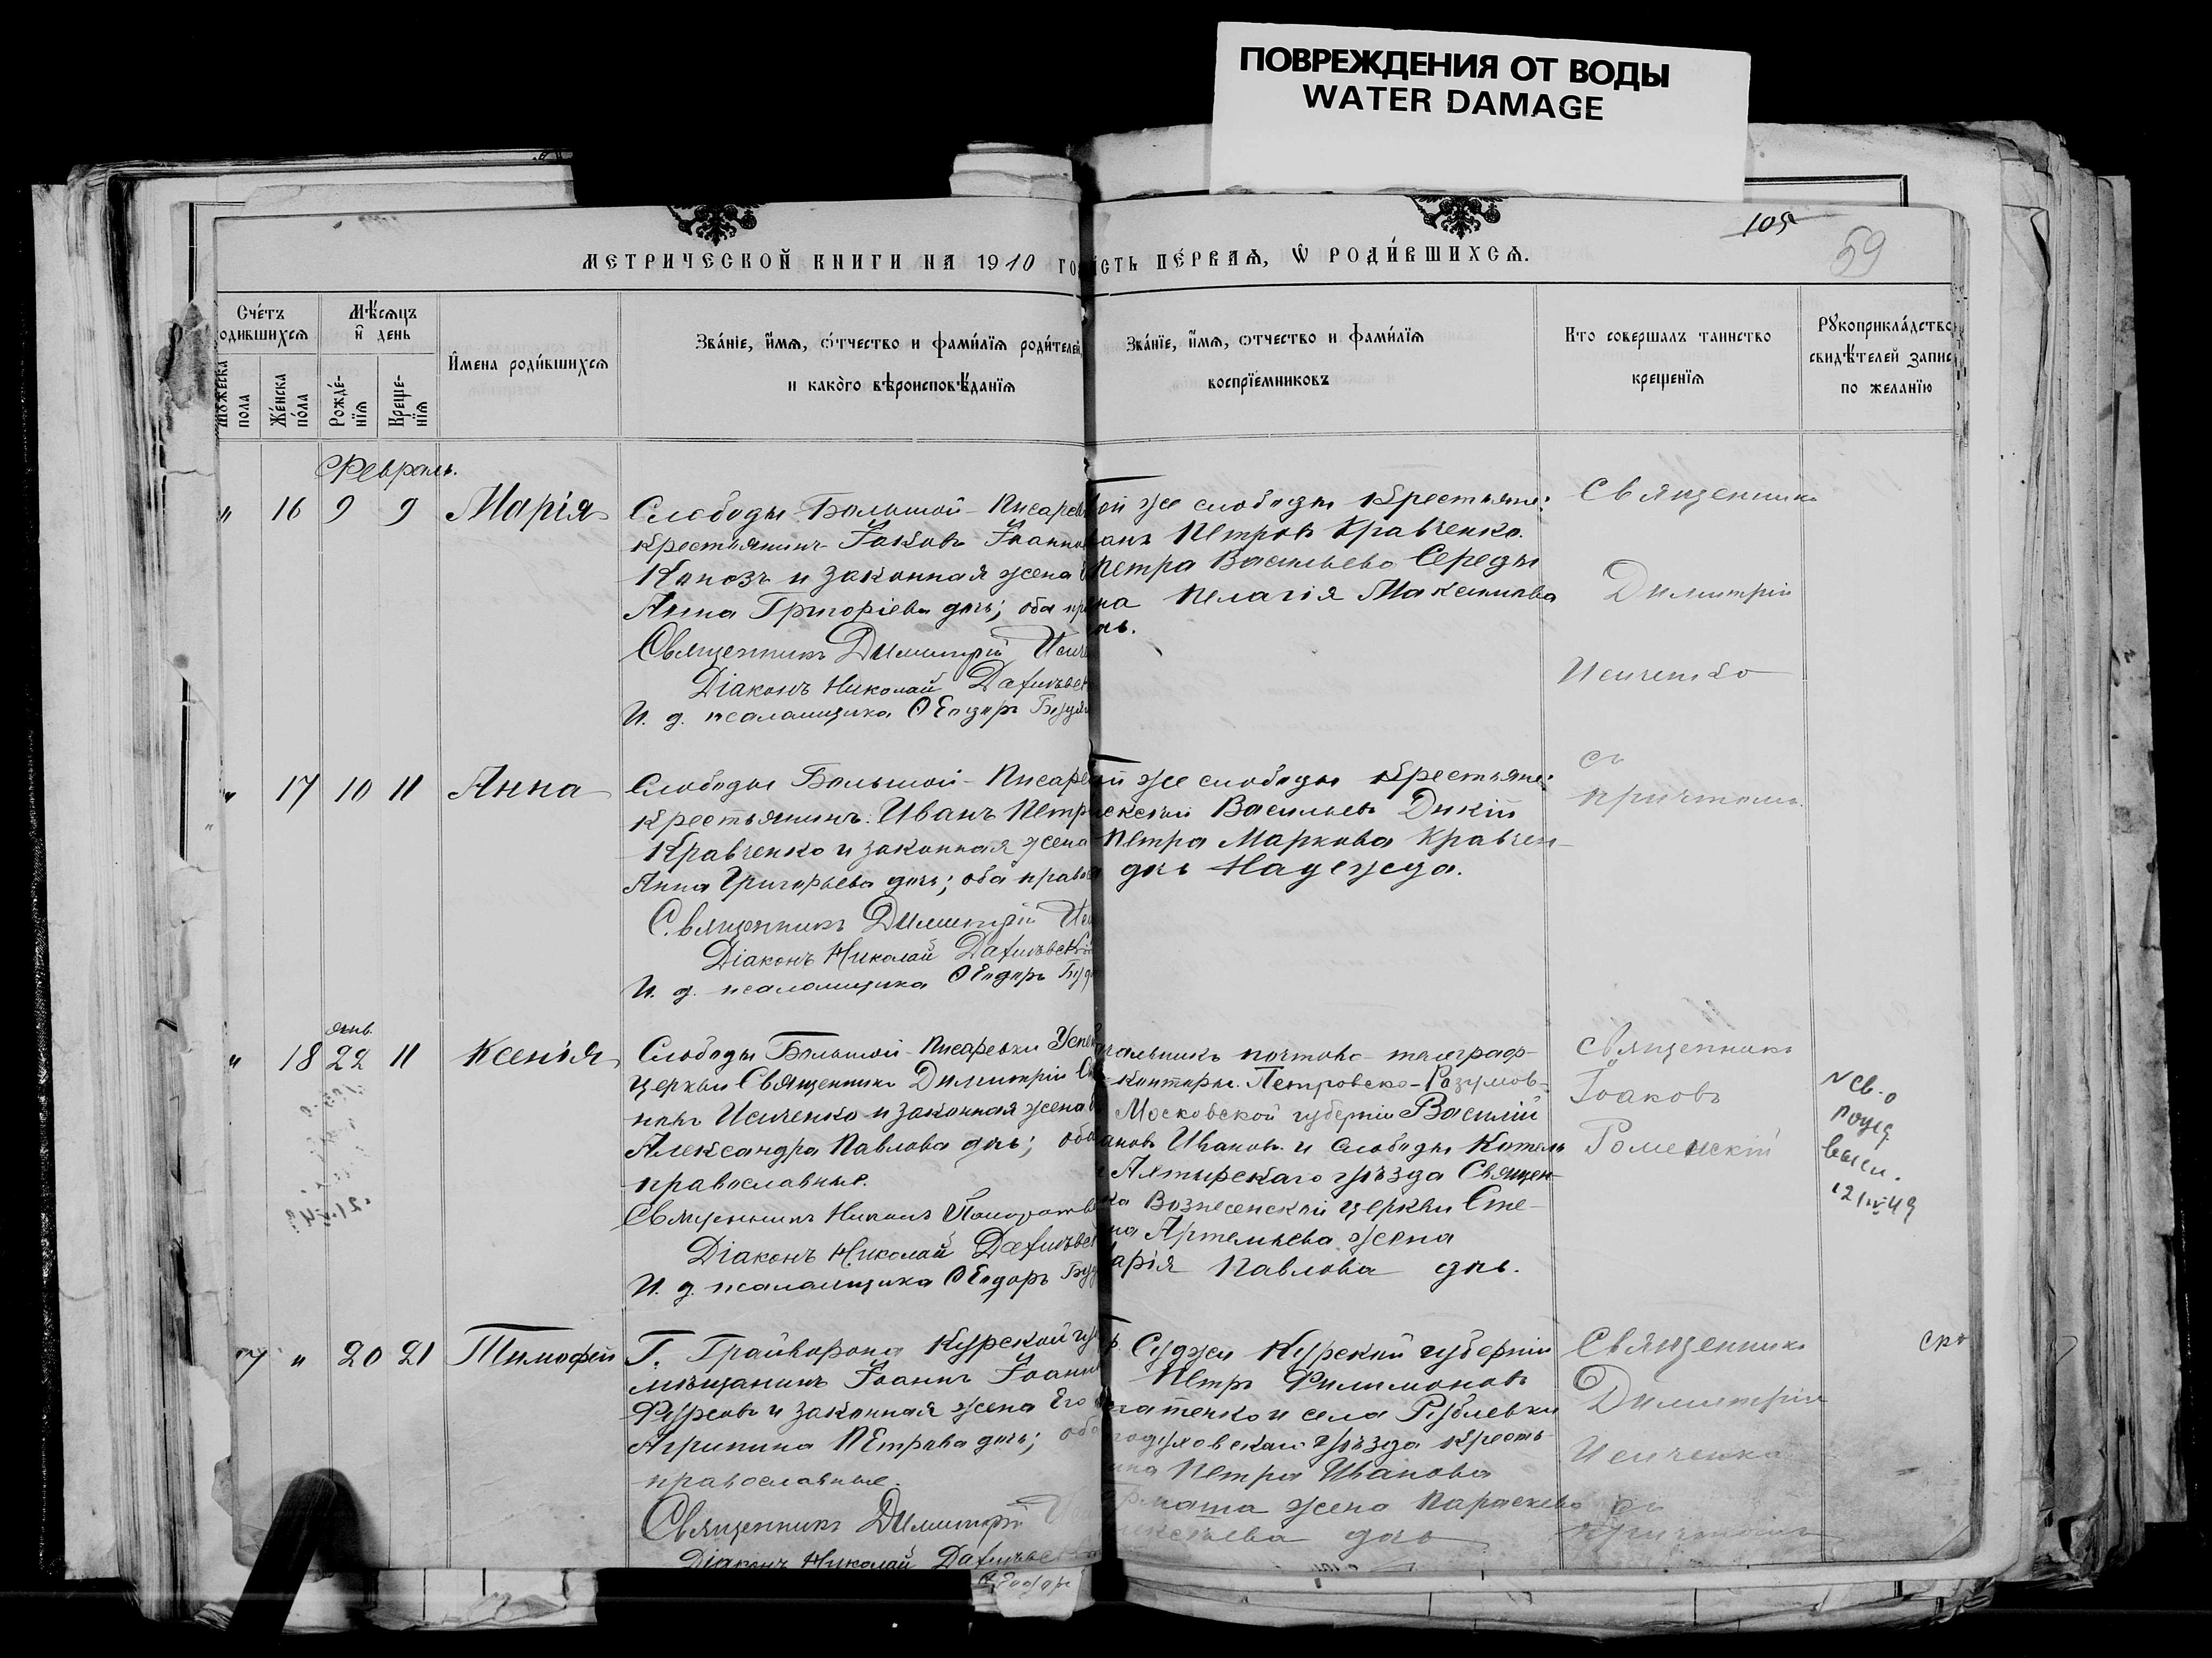 ПОВРЕЖДЕНИЯ ОТ ВОДЫ
WATER DAMAGE
105
59
МЕТРИЧЕСКОЙ КНИГИ НА 1910 ГО
СТЬ ПЕ́РВАѦ, Ѡ РОДИ́ВШИХСѦ.
Сче́тъ
одившихсѧ
Мѣ́сѧцъ
и̂ день
Мꙋжеска
пола
Же́нска
по́ла
Рожде́-
нїѧ
Креще-
нїѧ
И̂мена роди́вшихсѧ
Зва́нїе, и҆́мѧ, ѻ҆́тчество и фами́лїѧ роди́телей,
и како́го вѣроисповѣ́данїѧ
Зва́нїе, и҆́мѧ, ѻтчество и фами́лїѧ
воспрїе́мниковъ
Кто совершалъ таинство
крещенїѧ
Рꙋкоприкла́дство
свидѣ́телей запис
по желанїю
Февраль.
" 16 9 9 Марія
Слободы Большой-Писарев
крестьянинъ Іаковъ Іоанно
и законная жена
Анна Григоріева дочь; оба пр
Священникъ Димитрій
Діаконъ Николай
И. д. псаломщика Ѳеодоръ
ой же слободы крестьяне:
анъ Петровъ Кравченко.
Петра Васильева Середы
на Пелагія Максимова
чь.
Священникъ
Димитрій
Исиченко
съ
причтомъ.
" 17 10 11 Анна
Слободы Большой-Писаре
крестьянинъ Иванъ Петр
Кравченко и законная жена
Анна Григорьева дочь; оба право
Священникъ Димитрій
Діаконъ Николай
И. д. псаломщика Ѳеодоръ
й же слободы крестьяне:
лексѣй Васильевъ Дикій
Петра Маркова Кравчен-
дчь Надежда.
янв.
" 18 22 11 Ксенія
Слободы Большой-Писаревки Успен
церкви Священникъ Димитрій
Исиченко и законная жена
Александра Павлова дчь; оба
православные.
Священникъ
Діаконъ Николай
И. д. псаломщика Ѳеодоръ
чальникъ почтово-телеграф-
конторы Петровско-Разумов-
Московской губерніи Василій
ановъ Ивановъ и слободы Котель
Ахтырскаго уѣзда Священ-
ка Вознесенской церкви Сте-
на Артемьева жена
арія Павлова дчь.
Священникъ
Іоаковъ
Роменскій
Св-о
высл.
7 " 20 21 Тимофей
Г. Грайворона Курской гу
мѣщанинъ Іоаннъ Іоанн
Фурсовъ и законная жена Его
Агрипина Петрова дочь; оба
православные.
Священникъ Димитрій
Діаконъ Николай
Ѳеодоръ
Суджи Курской губерніи
Петръ Филимоновъ
и села Рублевки
годуховскаго уѣзда кресть-
ина Петра Иванова
жена Параскева
дчь
Священникъ
Димитрій
Исиченко
съ
причтомъ